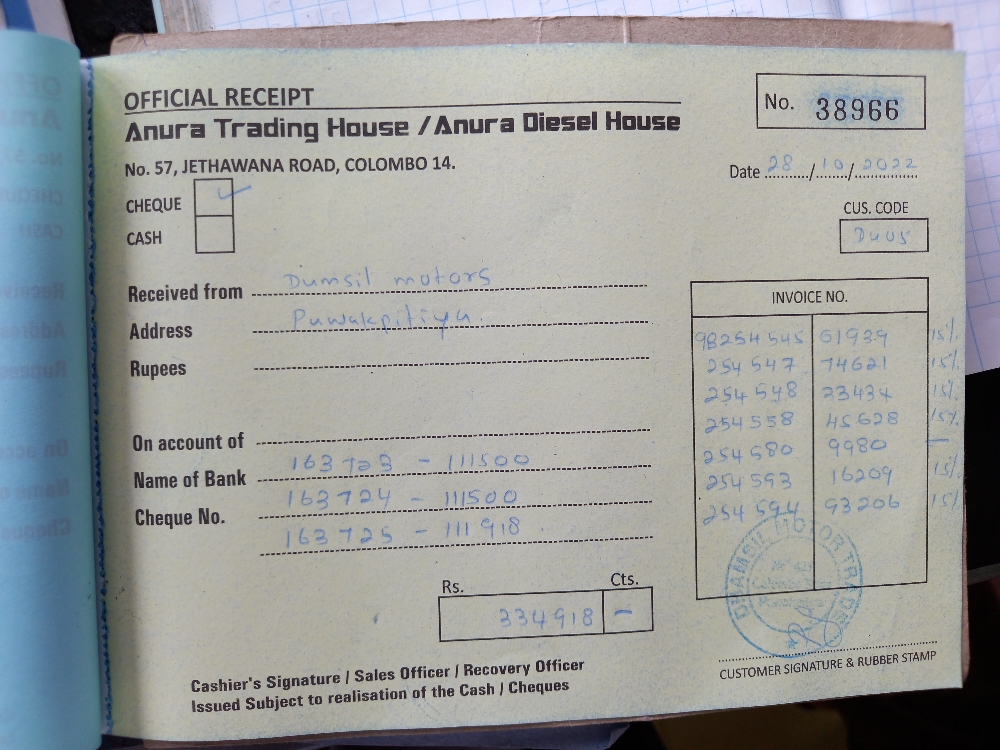 OFFICIAL RECEIPT
No. 38966
Anura Trading House / Anura Diesel House
No. 57, JETHAWANA ROAD, COLOMBO 14.
Date 28/10/2022
CHEQUE ✓
CASH
CUS. CODE
Received from Dumsil motors
Address Puwakpitiya
Rupees
INVOICE NO.
98254545 61939 15%
254547 74621 15%
254548 33434 15%
254558 45628 15%
254580 9980 —
254593 16209 15%
254594 93206 15%
On account of
Name of Bank 163723 - 111500
Cheque No. 163724 - 111500
163725 - 111918
Rs. Cts.
334918 -
MOTOR TRADE
Cashier's Signature / Sales Officer / Recovery Officer
Issued Subject to realisation of the Cash / Cheques
CUSTOMER SIGNATURE & RUBBER STAMP